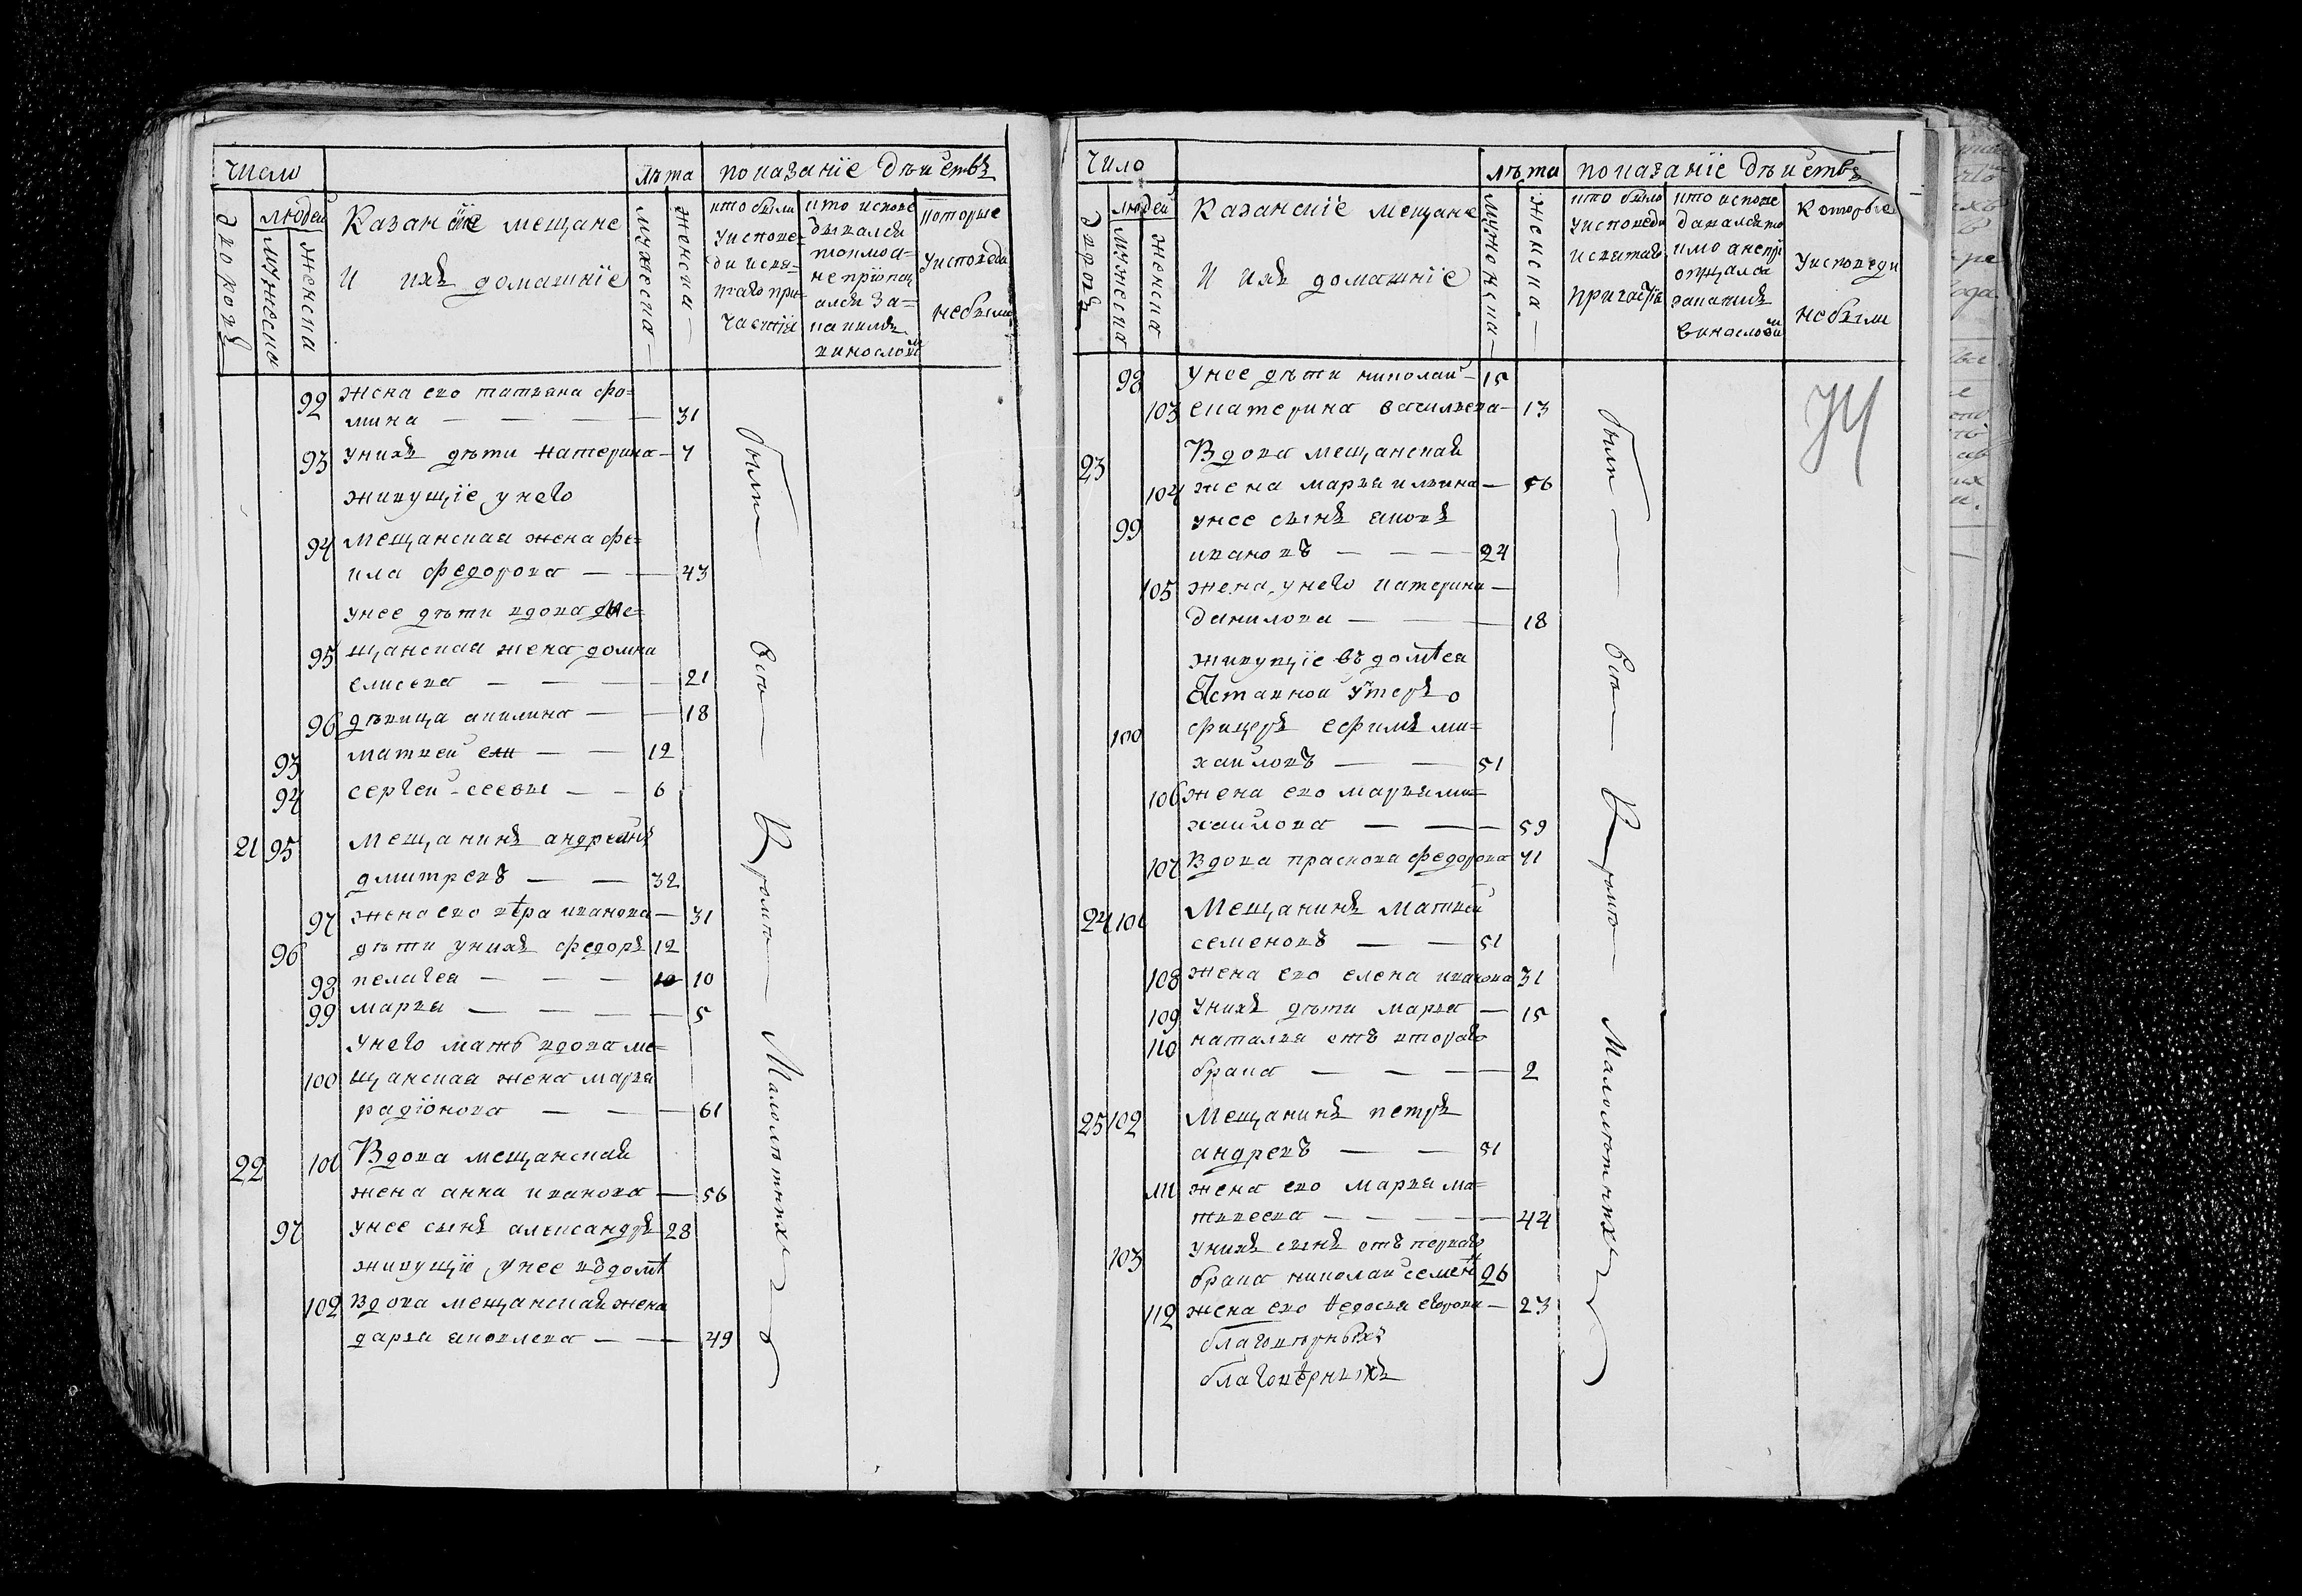 Число
лѣта показание дѣиствъ
дворовъ
людей
мужеска
женска
Казанские мещане
и ихъ домашние
мужеска
женска
кто были
у испове-
ди и свя-
таго при-
частия
кто испове
дывался
токмо а-
не приӧбщ
ался за-
каким
винословием
которые
у исповеди
небыли
92 жена ево татьяна фо-
мина — — — — 31
93 у нихъ дѣти катерина — 7
живущїе у него
94 мещанская жена фе-
кла федорова — — 43
у нее дѣти вдова ме-
95 щанская жена домна
елисева — — — 21
96 дѣвица акилина — — 18
93 матвей ели — — 12
94 сергей - сеевы — — 6
21 95 мещанинъ андреянъ
дмитревъ — — 32
97 жена ево вѣра иванова — 31
96 дѣти у нихъ федоръ 12
98 пелагея — — — 10 10
99 марья — — — — 5
у него мать вдова ме-
100 щанская жена марья
радїонова — — — 61
22 101 Вдова мещанская
жена анна иванова — 56
97 у нее сынъ александръ 28
живущїе у нее въ домѣ
102 вдова мещанская жена
дарья аковлева — — 49
были — Вси — Кромѣ — Малолѣтнихъ
Число
лѣта показанїе дѣиствъ
дворовъ
людей
мужеска
женска
Казанскїе мещане
и ихъ домашнїе
мужеска —
женска —
кто были
у исповеди
и святаго
причастїя
кто испове
дывался то
кмо а непрї
общался
за каким
винословием
Которые
у исповеди
небыли
74
98 у нее дѣти николай — 15
103 екатерина васильева — 13
23 Вдова мещанская
104 жена марья ильина — 56
99 у нее сынъ яковъ
ивановъ — — — 24
105 жена у него катерина —
данилова — — 18
живущїе въ домѣ ея
Отставной унтеръ о
100 фицеръ ефимъ ми-
хайловъ — — 51
106 жена ево марья ми-
хайлова — — — 59
107 Вдова прасковя федорова 71
24 101 Мещанинъ матвей
семеновъ — — 51
108 жена ево елена иванова 31
109 у нихъ дѣти марья — 15
110 наталья отъ втораго
брака — — — — 2
25 102 Мещанинъ петръ
андревъ — — 51
111 жена ево марья ма-
твеева — — — — 44
103 у нихъ сынъ отъ перваго
брака николай семен 26
112 жена ево ѳедосья егорова — 23
благовѣрныхъ
благовѣрныхъ
были — Вси — Кромѣ — Малолѣтнихъ